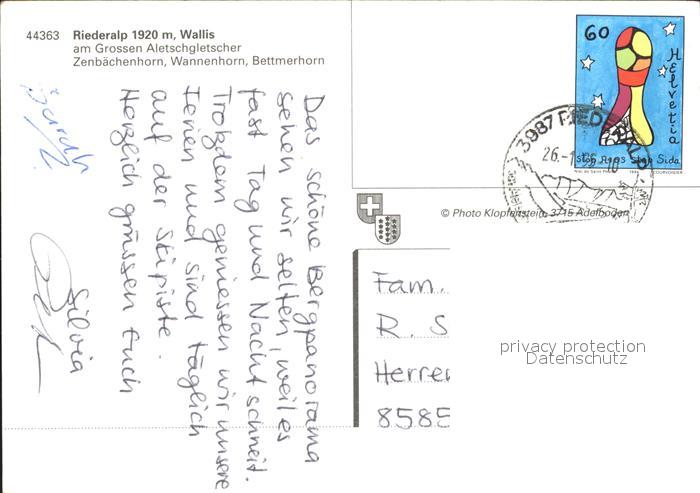 44363 Riederalp 1920 m, Wallis
am Grossen Aletschgletscher
Zenbächenhorn, Wannenhorn, Bettmerhorn
Das schöne Bergpanorama
sehen wir selten, weil es
fast Tag und Nacht schneit.
Trotzdem geniessen wir unsere
Ferien und sind täglich
auf der Skipiste.
Herzlich grüssen Euch
Silvia
Sarah
60
Helvetia
Stop AIDS Stop Sida
Niki de Saint Phalle COURVOISIER
3987 RIEDERALP
26.-1.
© Photo Klopfenstein, 3715 Adelboden
Fam.
R. S
Herren
8585
privacy protection
Datenschutz